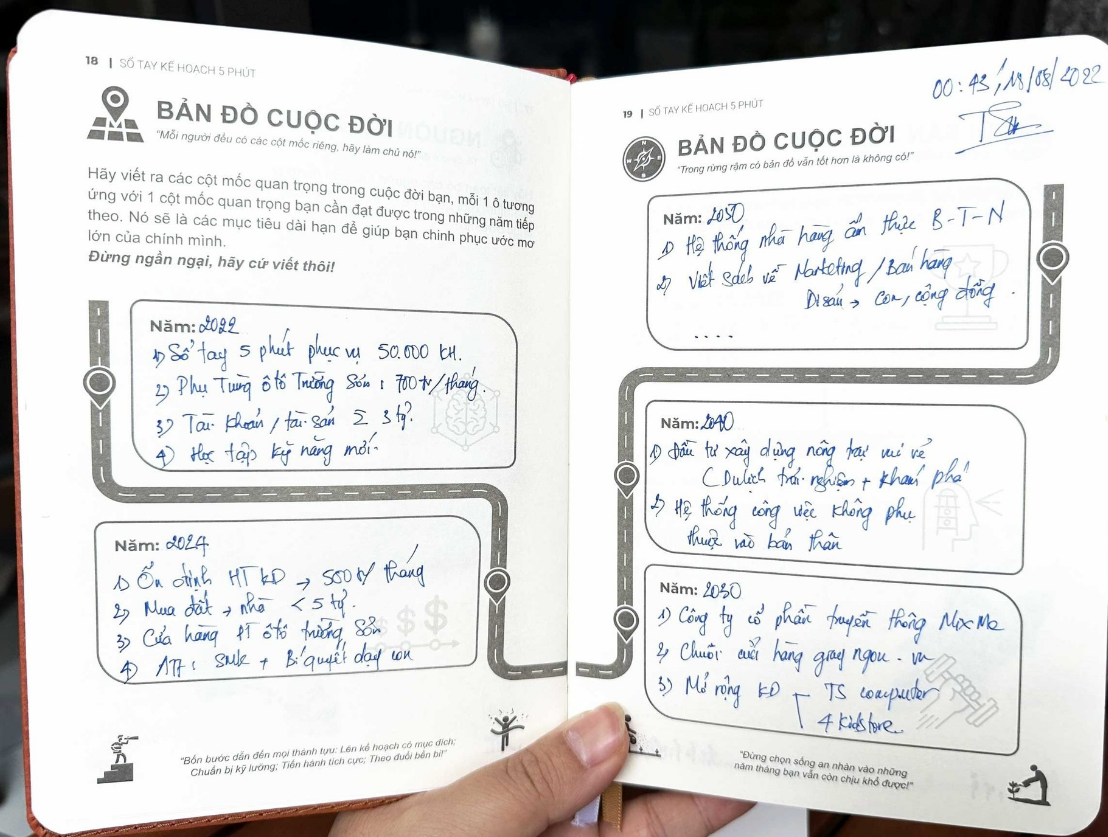 18 | SỔ TAY KẾ HOẠCH 5 PHÚT
BẢN ĐỒ CUỘC ĐỜI
"Mỗi người đều có các cột mốc riêng, hãy làm chủ nó!"
Hãy viết ra các cột mốc quan trọng trong cuộc đời bạn, mỗi 1 ô tương
ứng với 1 cột mốc quan trọng bạn cần đạt được trong những năm tiếp
theo. Nó sẽ là các mục tiêu dài hạn để giúp bạn chinh phục ước mơ
lớn của chính mình.
Đừng ngần ngại, hãy cứ viết thôi!
Năm: 2022
1) Sổ tay 5 phút phục vụ 50.000 KH.
2) Phụ Tùng ôtô Trường Sơn : 700tr/tháng.
3) Tài khoản / tài sản Σ 3 tỷ.
4) Học tập kỹ năng mới.
Năm: 2024
1) Ổn định HT KD → 500tr/ tháng
2) Mua đất → nhà < 5 tỷ.
3) Cửa hàng PT ôtô trường Sơn
4) : SMK + Bí quyết dạy con
"Bốn bước dẫn đến mọi thành tựu: Lên kế hoạch có mục đích;
Chuẩn bị kỹ lưỡng; Tiến hành tích cực; Theo đuổi bền bỉ!"
00:43, 18/08/2022
19 | SỔ TAY KẾ HOẠCH 5 PHÚT
BẢN ĐỒ CUỘC ĐỜI
"Trong rừng rậm có bản đồ vẫn tốt hơn là không có!"
Năm: 2050
1) Hệ thống nhà hàng ẩm thực B-T-N
2) Viết sách về Marketing / Bán hàng
Di sản → con, cộng đồng.
....
Năm: 2040
1) Đầu tư xây dựng nông trại vui vẻ
( Du lịch trải nghiệm + khám phá
2) Hệ thống công việc không phụ
thuộc vào bản thân
Năm: 2030
1) Công ty cổ phần truyền thông MixMe
2) Chuỗi cửa hàng giayngon.vn
3) Mở rộng KD TS computer
4Kidstore
"Đừng chọn sống an nhàn vào những
năm tháng bạn vẫn còn chịu khổ được!"